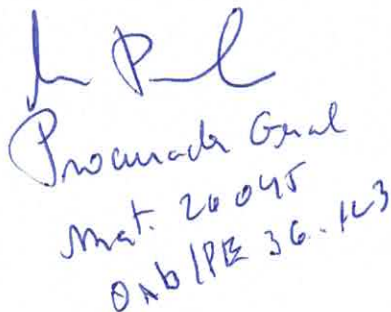 Procurador Geral
Mat. 26045
OAB/PE 36.143